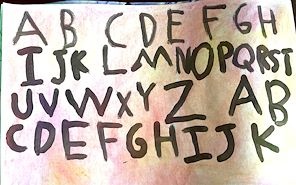 A B C D E F G H
I J K L M N O P Q R S T
U V W X Y Z A B
C D E F G H I J K